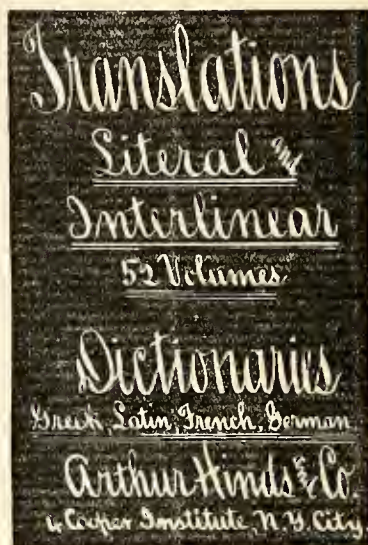 Translations
Literal and
Interlinear
52 Volumes.
Dictionaries
Greek, Latin, French, German
Arthur Hinds and Co.
4 Cooper Institute, N.Y. City.